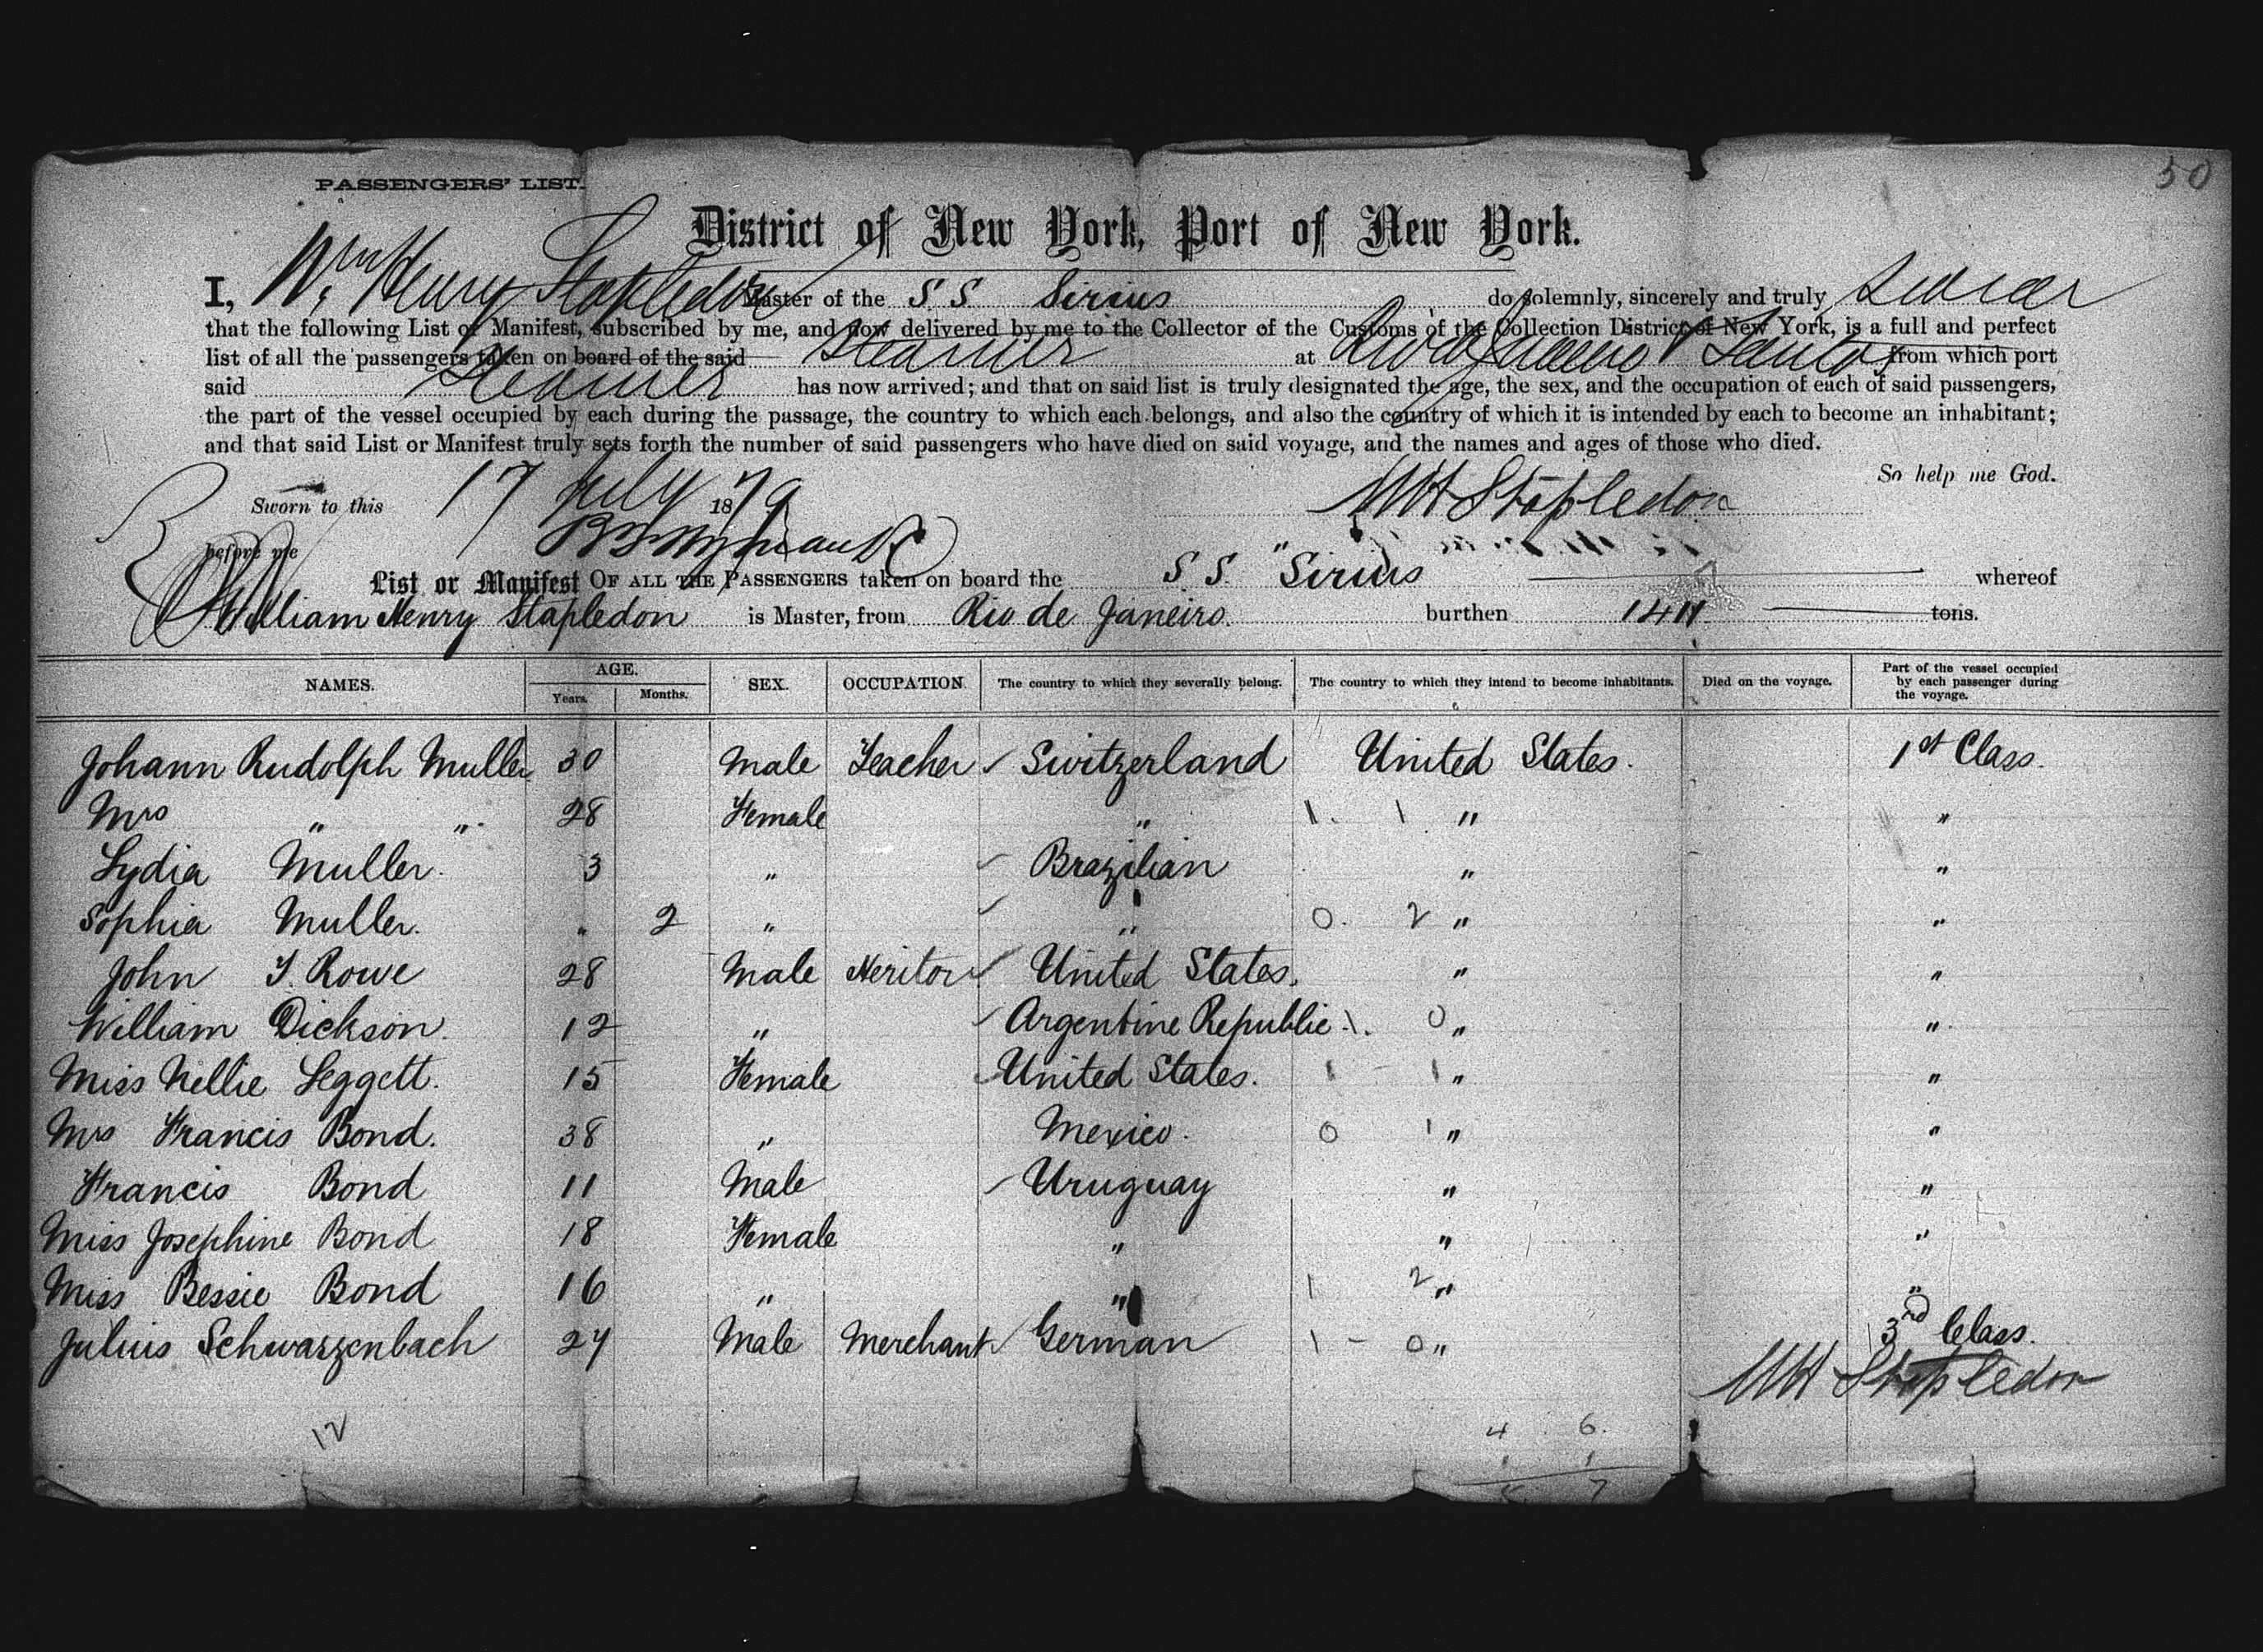 50
PASSENGERS' LIST.
District of New York, Port of New York.
I, Wm Henry Stapledon Master of the S S Sirius do solemnly, sincerely and truly swear
that the following List or Manifest, subscribed by me, and now delivered by me to the Collector of the Customs of the Collection District of New York, is a full and perfect
list of all the passengers taken on board of the said Steamer at Rio de Janeiro & Santos from which port
said Steamer has now arrived; and that on said list is truly designated the age, the sex, and the occupation of each of said passengers,
the part of the vessel occupied by each during the passage, the country to which each belongs, and also the country of which it is intended by each to become an inhabitant;
and that said List or Manifest truly sets forth the number of said passengers who have died on said voyage, and the names and ages of those who died.
So help me God.
Sworn to this 17 July 1879 WH Stapledon
before me
List or Manifest OF ALL THE PASSENGERS taken on board the S S. "Sirius whereof
William Henry Stapledon is Master, from Rio de Janeiro. burthen 1411 tons.
NAMES. AGE. Years. Months. SEX. OCCUPATION. The country to which they severally belong. The country to which they intend to become inhabitants. Died on the voyage. Part of the vessel occupied by each passenger during the voyage.
Johann Rudolph Muller 30 Male Teacher Switzerland United States. 1st Class.
Mrs " " 28 Female " 1. 1 " "
Lydia Muller. 3 " Brazilian " "
Sophia Muller. " 2 " " 0. 2 " "
John T. Rowe 28 Male United States. " "
William Dickson. 12 " Argentine Republic 1. 0 " "
Miss Nellie Leggett. 15 Female United States. 1 - 1 " "
Mrs Francis Bond. 38 " Mexico. 0 1 " "
Francis Bond 11 Male Uruguay " "
Miss Josephine Bond 18 Female " " "
Miss Bessie Bond 16 " " 1 2 " "
Julius Schwarzenbach 24 Male Merchant German 1 - 0 " 3rd Class.
WH Stapledon
12
4 6.
1 1
5 7